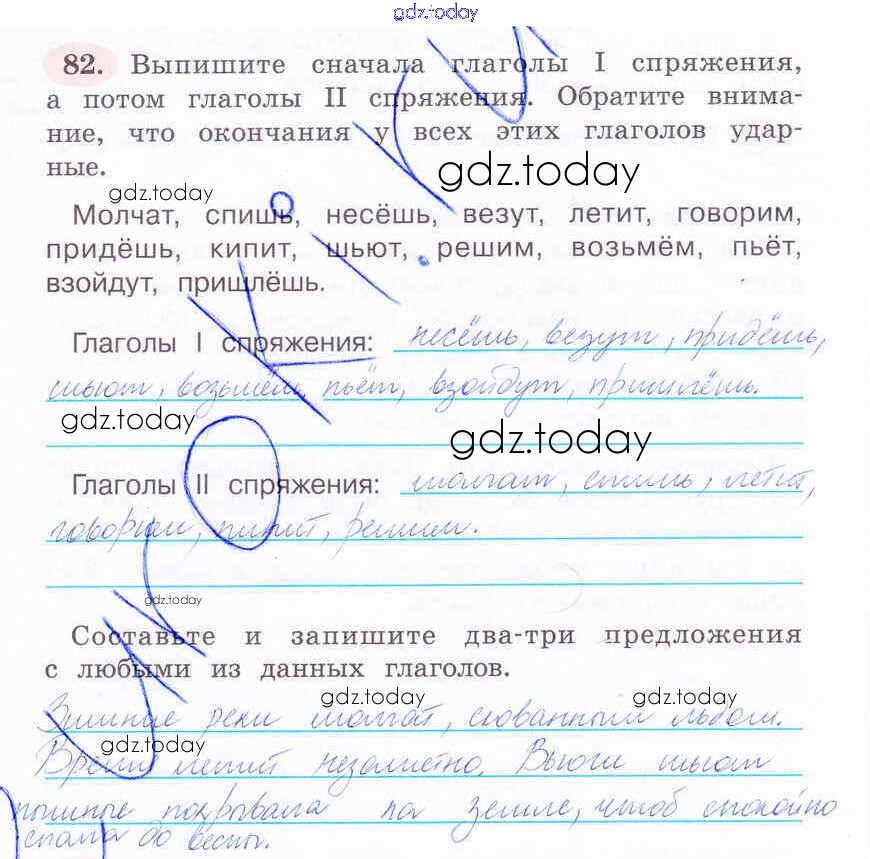 gdz.today
82. Выпишите сначала глаголы I спряжения,
а потом глаголы II спряжения. Обратите внима-
ние, что окончания у всех этих глаголов удар-
ные.
gdz.today
gdz.today
Молчат, спишь, несёшь, везут, летит, говорим,
придёшь, кипит, шьют, решим, возьмём, пьёт,
взойдут, пришлёшь.
Глаголы I спряжения: несёшь, везут, придёшь,
шьют, возьмём, пьёт, взойдут, пришлёшь.
gdz.today
gdz.today
Глаголы II спряжения: молчат, спишь, летит,
говорим, кипит, решим.
gdz.today
Составьте и запишите два-три предложения
с любыми из данных глаголов.
gdz.today
gdz.today
Зимние реки молчат, скованный льдом.
gdz.today
Время летит незаметно. Вьюги шьют
пышные покрывала на земле, чтоб спокойно
спала до весны.